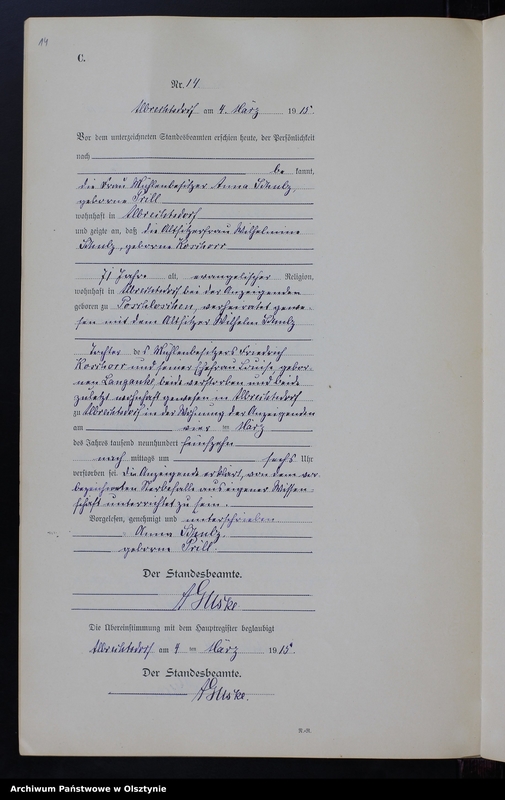 14
C.
Nr. 14.
Albrechtsdorf am 4. März 1915.
Vor dem unterzeichneten Standesbeamten erschien heute, der Persönlichkeit
nach
be kannt,
die Frau Mühlenbesitzer Anna Schulz,
geborne Prill
wohnhaft in Albrechtsdorf
und zeigte an, daß die Altsitzerfrau Wilhelmine
Schulz, geborne
71 Jahre alt, evangelischer Religion,
wohnhaft in Albrechtsdorf bei der Anzeigenden
geboren zu verheiratet gewe-
sen mit dem Altsitzer Wilhelm Schulz
Tochter des Mühlenbesitzers Friedrich
und seiner Ehefrau Louise, gebor-
nen Langankl, beide verstorben und beide
zuletzt wohnhaft gewesen in Albrechtsdorf
zu Albrechtsdorf in der Wohnung der Anzeigenden
am vier ten März
des Jahres tausend neunhundert fünfzehn
nach mittags um sechs Uhr
verstorben sei. Die Anzeigende erklärt, von dem vor-
bezeichneten Sterbefalle aus eigener Wissen-
schaft unterrichtet zu sein.
Vorgelesen, genehmigt und unterschrieben
Anna Schulz,
geborne Prill.
Der Standesbeamte.
Die Übereinstimmung mit dem Hauptregister beglaubigt
Albrechtsdorf am 4 ten März 1915.
Der Standesbeamte.
Archiwum Państwowe w Olsztynie